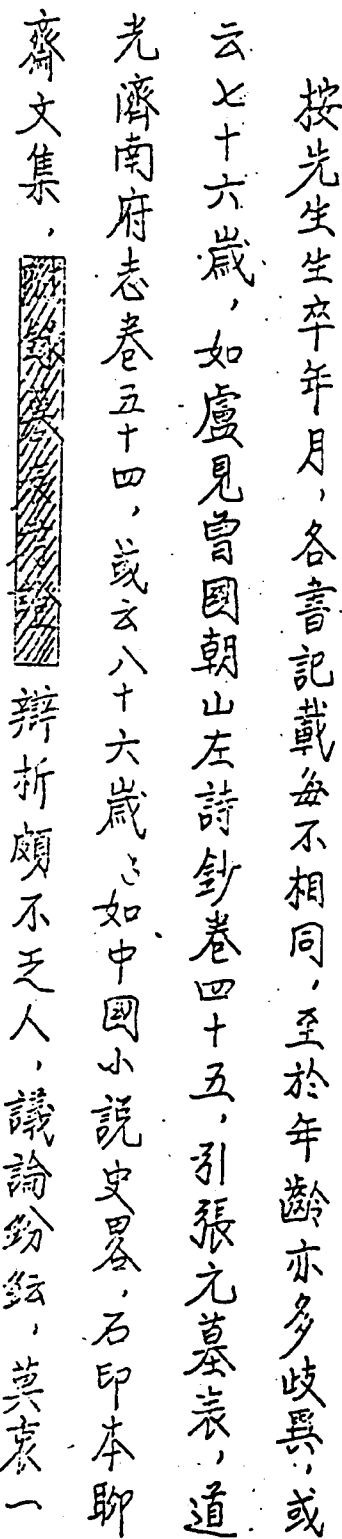 按先生生卒年月，各書記載每不相同，至於年齡亦多歧異，或
云七十六歲，如盧見曾國朝山左詩鈔卷四十五，引張元墓表，道
光濟南府志卷五十四，或云八十六歲，如中國小說史畧，石印本聊
齋文集，辯析頗不乏人，議論紛紜，莫衷一